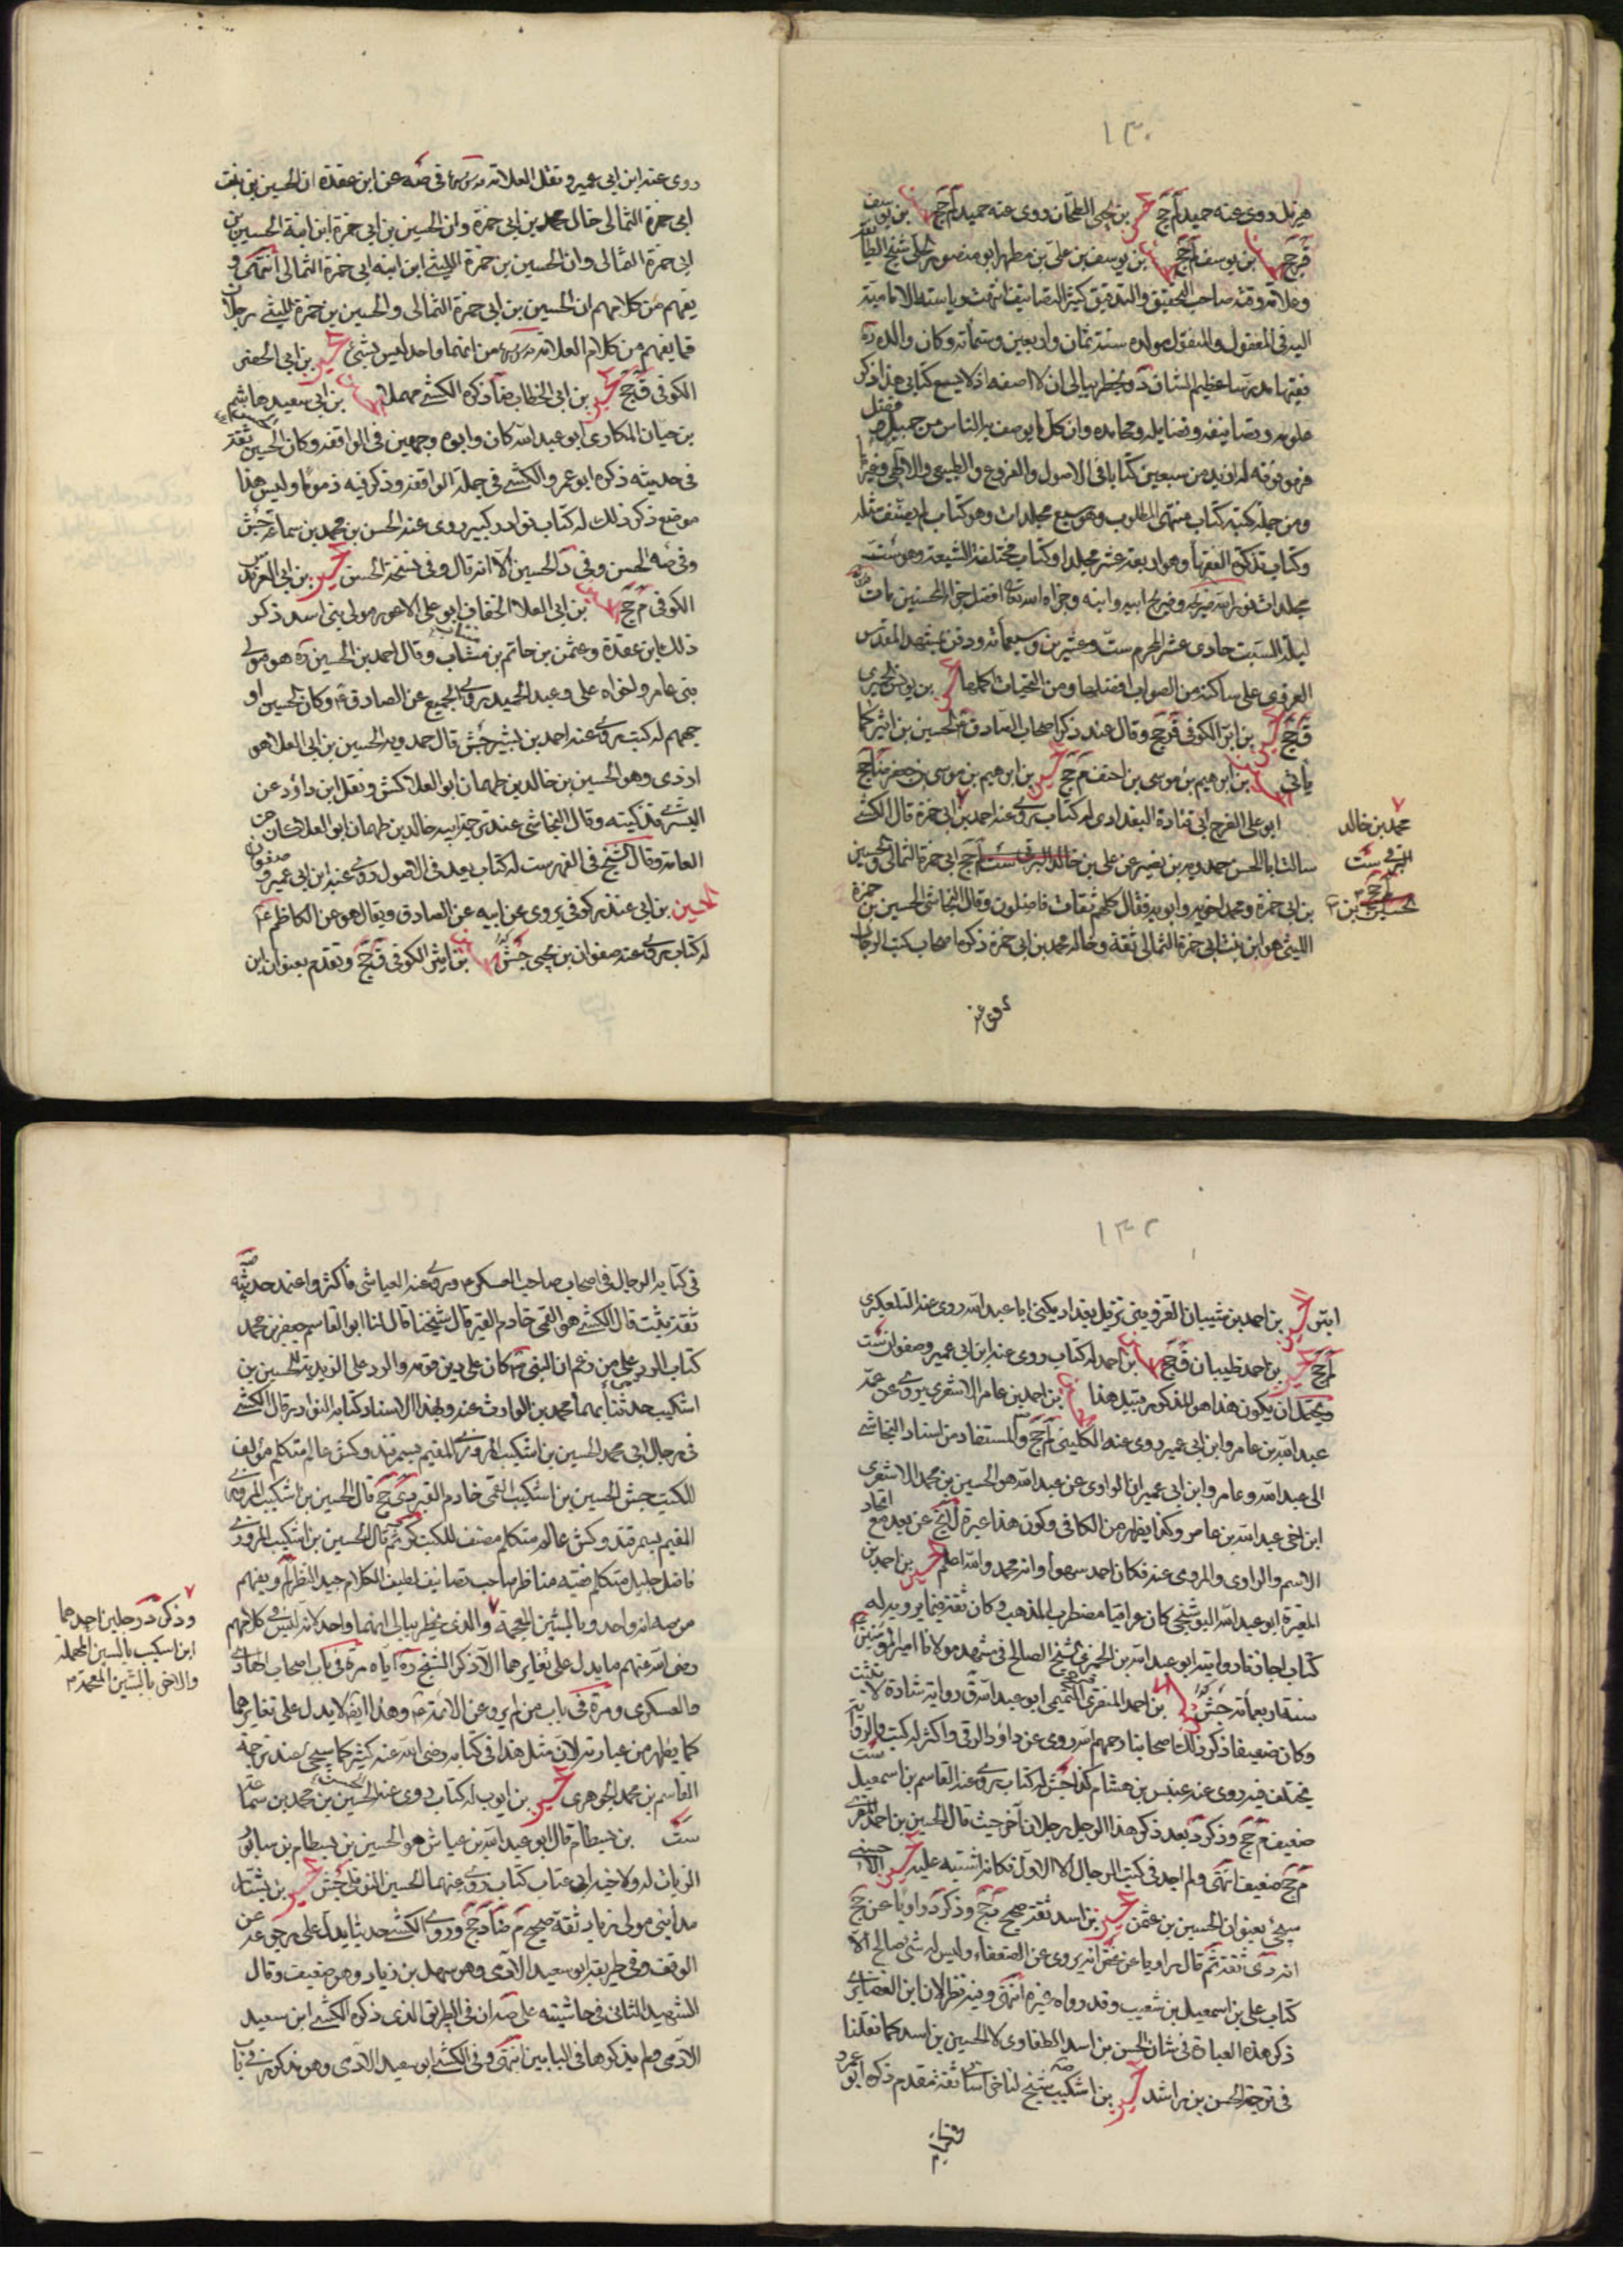 ١٣٠
هزيل روى عنه حميد لم جخ بن يحيى الطحان روى عنه حميد لم جخ بن يوسف
ق جخ بن يوسف لم جخ بن يوسف بن علي بن مطهر ابو منصور الحلي شيخ الطائفة
وعلامة وقته صاحب التحقيق والتدقيق كثير التصانيف انتهت رياسة الامامية
اليه في المعقول والمنقول مولده سنة ثمان واربعين وستمائة وكان والده ره
فقيها مدرسا عظيم الشان د ويخطر ببالي ان لا اصفه اذ لا يسع كتابي هذا ذكر
علومه وتصانيفه وفضايله ومحامده وان كل ما يوصف به الناس من جميل وفضل
فهو فوقه له ازيد من سبعين كتابا في الاصول والفروع والطبيعي والالهي وغيرها
ومن جملة كتبه كتاب منتهى المطلوب وهو سبع مجلدات وهو كتاب لم يصنف مثله
وكتاب تذكرة الفقهاء وهو اربعة عشر مجلدا وكتاب مختلف الشيعة وهو ست
مجلدات نور الله ضريحه وضريح ابيه وابنه وجزاه الله تعالى افضل جزاء المحسنين مات
ليلة السبت حادي عشر المحرم ست وعشرين وسبعمائة ودفن بمشهد المقدس
الغروي على ساكنه من الصلوات افضلها ومن التحيات اكملها بن يونس الحميري
ق جخ بن ابتر الكوفي ق جخ وقال عند ذكر اصحاب الصادق ع الحسين بن اثير كما
يأتي بن ابرهيم بن موسى بن احنف م جخ بن ابرهيم بن موسى بن جعفر ضا جخ
ابو علي الفرج ابي قتادة البغدادي له كتاب روى عنه احمد بن ابي حمزة قال الكشي
سالت ابا الحسن حمدويه بن نصير عن علي بن خالد البرقي ست لم جخ ابي حمزة الثمالي والحسين
بن ابي حمزة ومحمد اخويه وابويه فقال كلهم ثقات فاضلون وقال النجاشي الحسين بن حمزة
الليثي هو ابن بنت ابي حمزة الثمالي ثقة وخاله محمد بن ابي حمزة ذكره اصحاب كتب الرجال
روى عنه
محمد بن خالد
البرقي ست
لم جخ
حسين بن
روى عنه ابن ابي عمير ونقل العلامة قدس سره في صه عن ابن عقدة ان الحسين بن بنت
ابي حمزة الثمالي خال محمد بن ابي حمزة وان الحسين بن ابي حمزة ابن ابنة الحسين بن
ابي حمزة الثمالي وان الحسين بن حمزة الليثي ابن ابنه ابي حمزة الثمالي انتهى و
يفهم من كلامهم ان الحسين بن ابي حمزة الثمالي والحسين بن حمزة الليثي رجلان
فما يفهم من كلام العلامة قدس سره من انهما واحد ليس بشئ بن ابي الخضر
الكوفي ق جخ بن ابي الخطاب ضا ذكره الكشي مهملا بن ابي سعيد هاشم
بن حيان المكاري ابو عبد الله كان وابوه وجهين في الواقفة وكان الحسين ثقة
في حديثه ذكره ابو عمرو الكشي في جملة الواقفة وذكر فيه ذموما وليس هذا
موضع ذكر ذلك له كتاب نوادر كبير روى عنه الحسن بن محمد بن سماعة جش
وفي صه الحسن وفي د الحسين الا انه قال وفي نسخة الحسن بن ابي العرندس
الكوفي م جخ بن ابي العلاء الخفاف ابو علي الاعور مولى بني اسد ذكر
ذلك ابن عقدة وعثمن بن حاتم بن منتاب وقال احمد بن الحسين ره هو مولى
بني عامر واخواه علي وعبد الحميد روى الجميع عن الصادق ع وكان الحسين او
جههم له كتب روى عنه احمد بن بشير جش قال حمدويه الحسين بن ابي العلاء هو
ازدي وهو الحسين بن خالد بن طهمان ابو العلا كش ونقل ابن داود عن
البشرى تزكيته وقال النجاشي عند ترجمة ابيه خالد بن طهمان ابو العلا كان من
العامة وقال الشيخ في الفهرست له كتاب يعد في الاصول روى عنه ابن ابي عمير وصفوان
حسين بن ابي غندر كوفي يروى عن ابيه عن الصادق ويقال هو عن الكاظم ع
له كتاب روى عنه صفوان بن يحيى جش بن اثير الكوفي ق جخ وتقدم بعنوان ابن
١٣٢
ابتر بن احمد بن شيبان القزويني نزيل بغداد يكنى ابا عبد الله روى عنه التلعكبري
لم جخ بن احمد ظبيان ق جخ بن احمد له كتاب روى عنه ابن ابي عمير وصفوان ست
ويحتمل ان يكون هذا هو المذكور قبيل هذا بن احمد بن عامر الاشعري يروى عن عمه
عبد الله بن عامر وابن ابي عمير روى عنه الكليني لم جخ والمستفاد من اسناد النجاشي
الى عبد الله وعامر وابن ابي عمير ان الراوي عن عبد الله هو الحسين بن محمد الاشعري
ابن اخي عبد الله بن عامر وكذا يظهر من الكافي وكون هذا غيره لا يخ عن بعد مع اتحاد
الاسم والراوي والمروي عنه فكان احمد سهوا وانه محمد والله اعلم بن احمد بن
المغيرة ابو عبد الله البوشنجي كان عراقيا مضطرب المذهب وكان ثقة فيما يرويه له
كتاب اجازنا روايته ابو عبد الله بن الخمري الشيخ الصالح في مشهد مولانا امير المؤمنين ع
سنة اربعمائة جش بن احمد المنقري التميمي ابو عبد الله ق رواية شاذة لا تثبت
وكان ضعيفا ذكر ذلك اصحابنا رحمهم الله روى عن داود الرقي واكثر له كتب والرواية
تختلف فيه روى عنه عبيس بن هشام كذا جش له كتاب روى عنه القاسم بن اسمعيل ست
ضعيف م جخ وذكر د بعد ذكر هذا الرجل رجلا آخر حيث قال الحسين بن احمد المنقري
م جخ ضعيف انتهى ولم اجد في كتب الرجال الا الاول فكانه اشتبه عليه
سيجئ بعنوان الحسين بن عثمن بن اسد ثقة صحيح دي جخ وذكر د راويا عن جخ
انه دي ثقة ثم قال راويا عن غض انه يروى عن الضعفاء وليس له شئ صالح الا
كتاب علي بن اسمعيل بن شعيب وقد رواه غيره انتهى وفيه نظر لان ابن الغضايري
ذكر هذه العبارة في شان الحسن بن اسد الطفاوي لا الحسين بن اسد كما نقلنا
في ترجمة الحسن بن راشد بن اشكيب شيخ لنا خراساني ثقة مقدم ذكره ابو عمرو
في كتابه
في كتابه الرجال في اصحاب صاحب العسكر ع وروى عنه العياشي فاكثر واعتمد حديثه
ثقة ثبت قال الكشي هو القمي خادم القبر قال شيخنا قال لنا ابو القاسم جعفر بن محمد
كتاب الرد على من زعم ان النبي ص كان على دين قومه والرد على الزيدية للحسين بن
اشكيب حدثنا بهما محمد بن الوارث عنه وبهذا الاسناد كتابه النوادر قال الكشي
في رجال ابي محمد الحسين بن اشكيب المروزي المقيم بسمرقند وكش عالم متكلم مؤلف
للكتب جش الحسين بن اشكيب القمي خادم القبر دي جخ قال الحسين بن اشكيب المروزي
المقيم بسمرقند وكش عالم متكلم مصنف للكتب كر ثم قال الحسين بن اشكيب المروزي
فاضل جليل متكلم فقيه مناظر صاحب تصانيف لطيف الكلام جيد النظر لم ويفهم
من صه انه واحد وبالشين المعجمة والذي يخطر ببالي انهما واحد لانه ليس في كلامهم
رضي الله عنهم ما يدل على تغايرهما الا ذكر الشيخ ره اياه مرة في باب اصحاب الهادي
والعسكري ومرة في باب من لم يرو عن الائمة ع وهذا ايضا لا يدل على تغايرهما
كما يظهر من عباراته لان مثل هذا في كتابه رضي الله عنه كثير كما سيجئ عند ترجمة
القاسم بن محمد الجوهري بن ايوب له كتاب روى عنه الحسين بن محمد بن سماعة
ست بن بسطام قال ابو عبد الله بن عياش هو الحسين بن بسطام بن سابور
الزيات له ولاخيه ابي عتاب كتاب روى عنهما الحسين النوفلي جش بن بشار
مدايني مولى زياد ثقة صحيح م ضا د جخ وروى الكشي حديثا يدل على رجوعه عن
الوقف وفي طريقه ابو سعيد الآدمي وهو سهل بن زياد وهو ضعيف وقال
الشهيد الثاني في حاشيته على صه ان في الطريق الذي ذكره الكشي ابن سعيد
الآدمي ولم يذكرها في البابين انتهى وفي الكشي ابو سعيد الآدمي وهو مذكور في باب
وذكر د رجلين احدهما
ابن اسكيب بالسين المهملة
والاخر بالشين المعجمة م